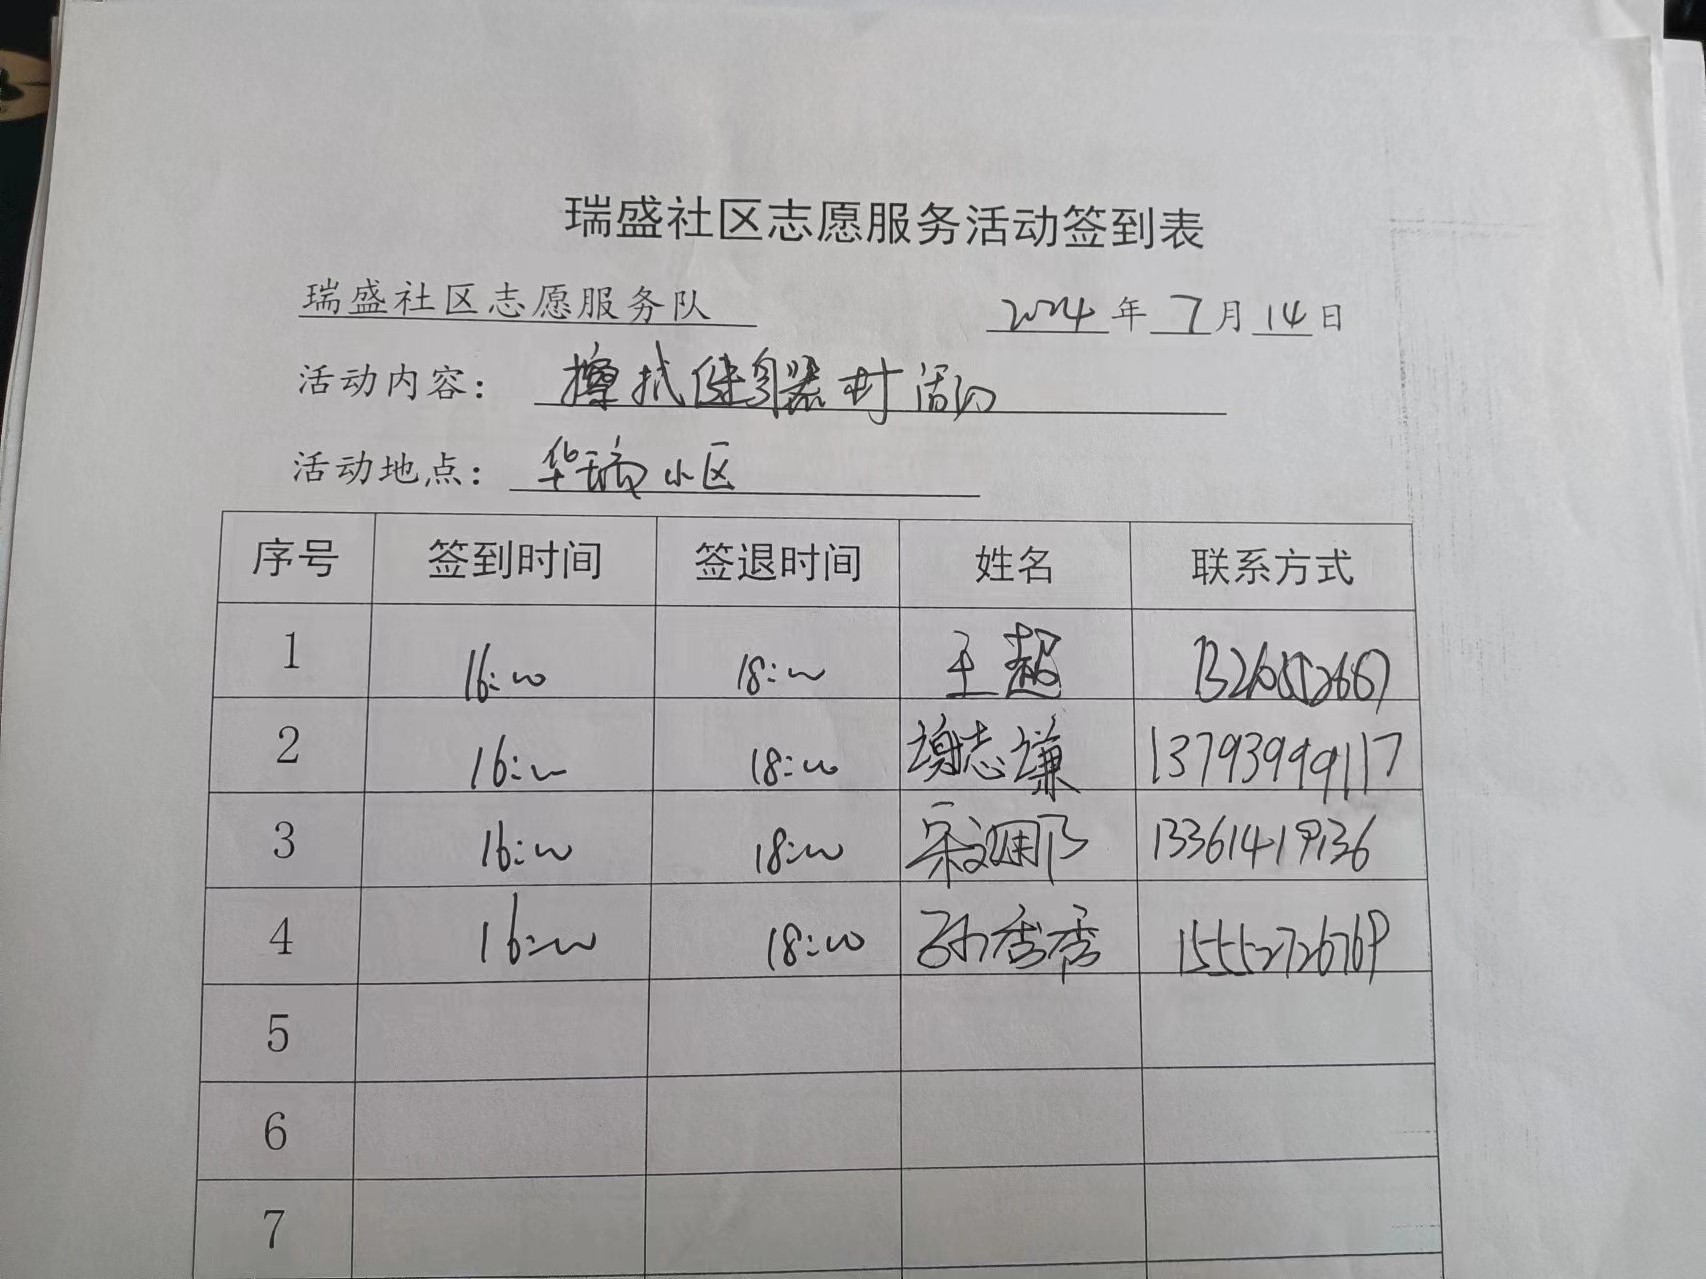 瑞盛社区志愿服务活动签到表
瑞盛社区志愿服务队 2024年7月14日
活动内容: 擦拭健身器材活动
活动地点: 华瑞小区
序号 签到时间 签退时间 姓名 联系方式
1 16:00 18:00 王超
2 16:00 18:00 谢志谦 13793999117
3 16:00 18:00 13361419136
4 16:00 18:00 孙秀秀 15552726769
5
6
7